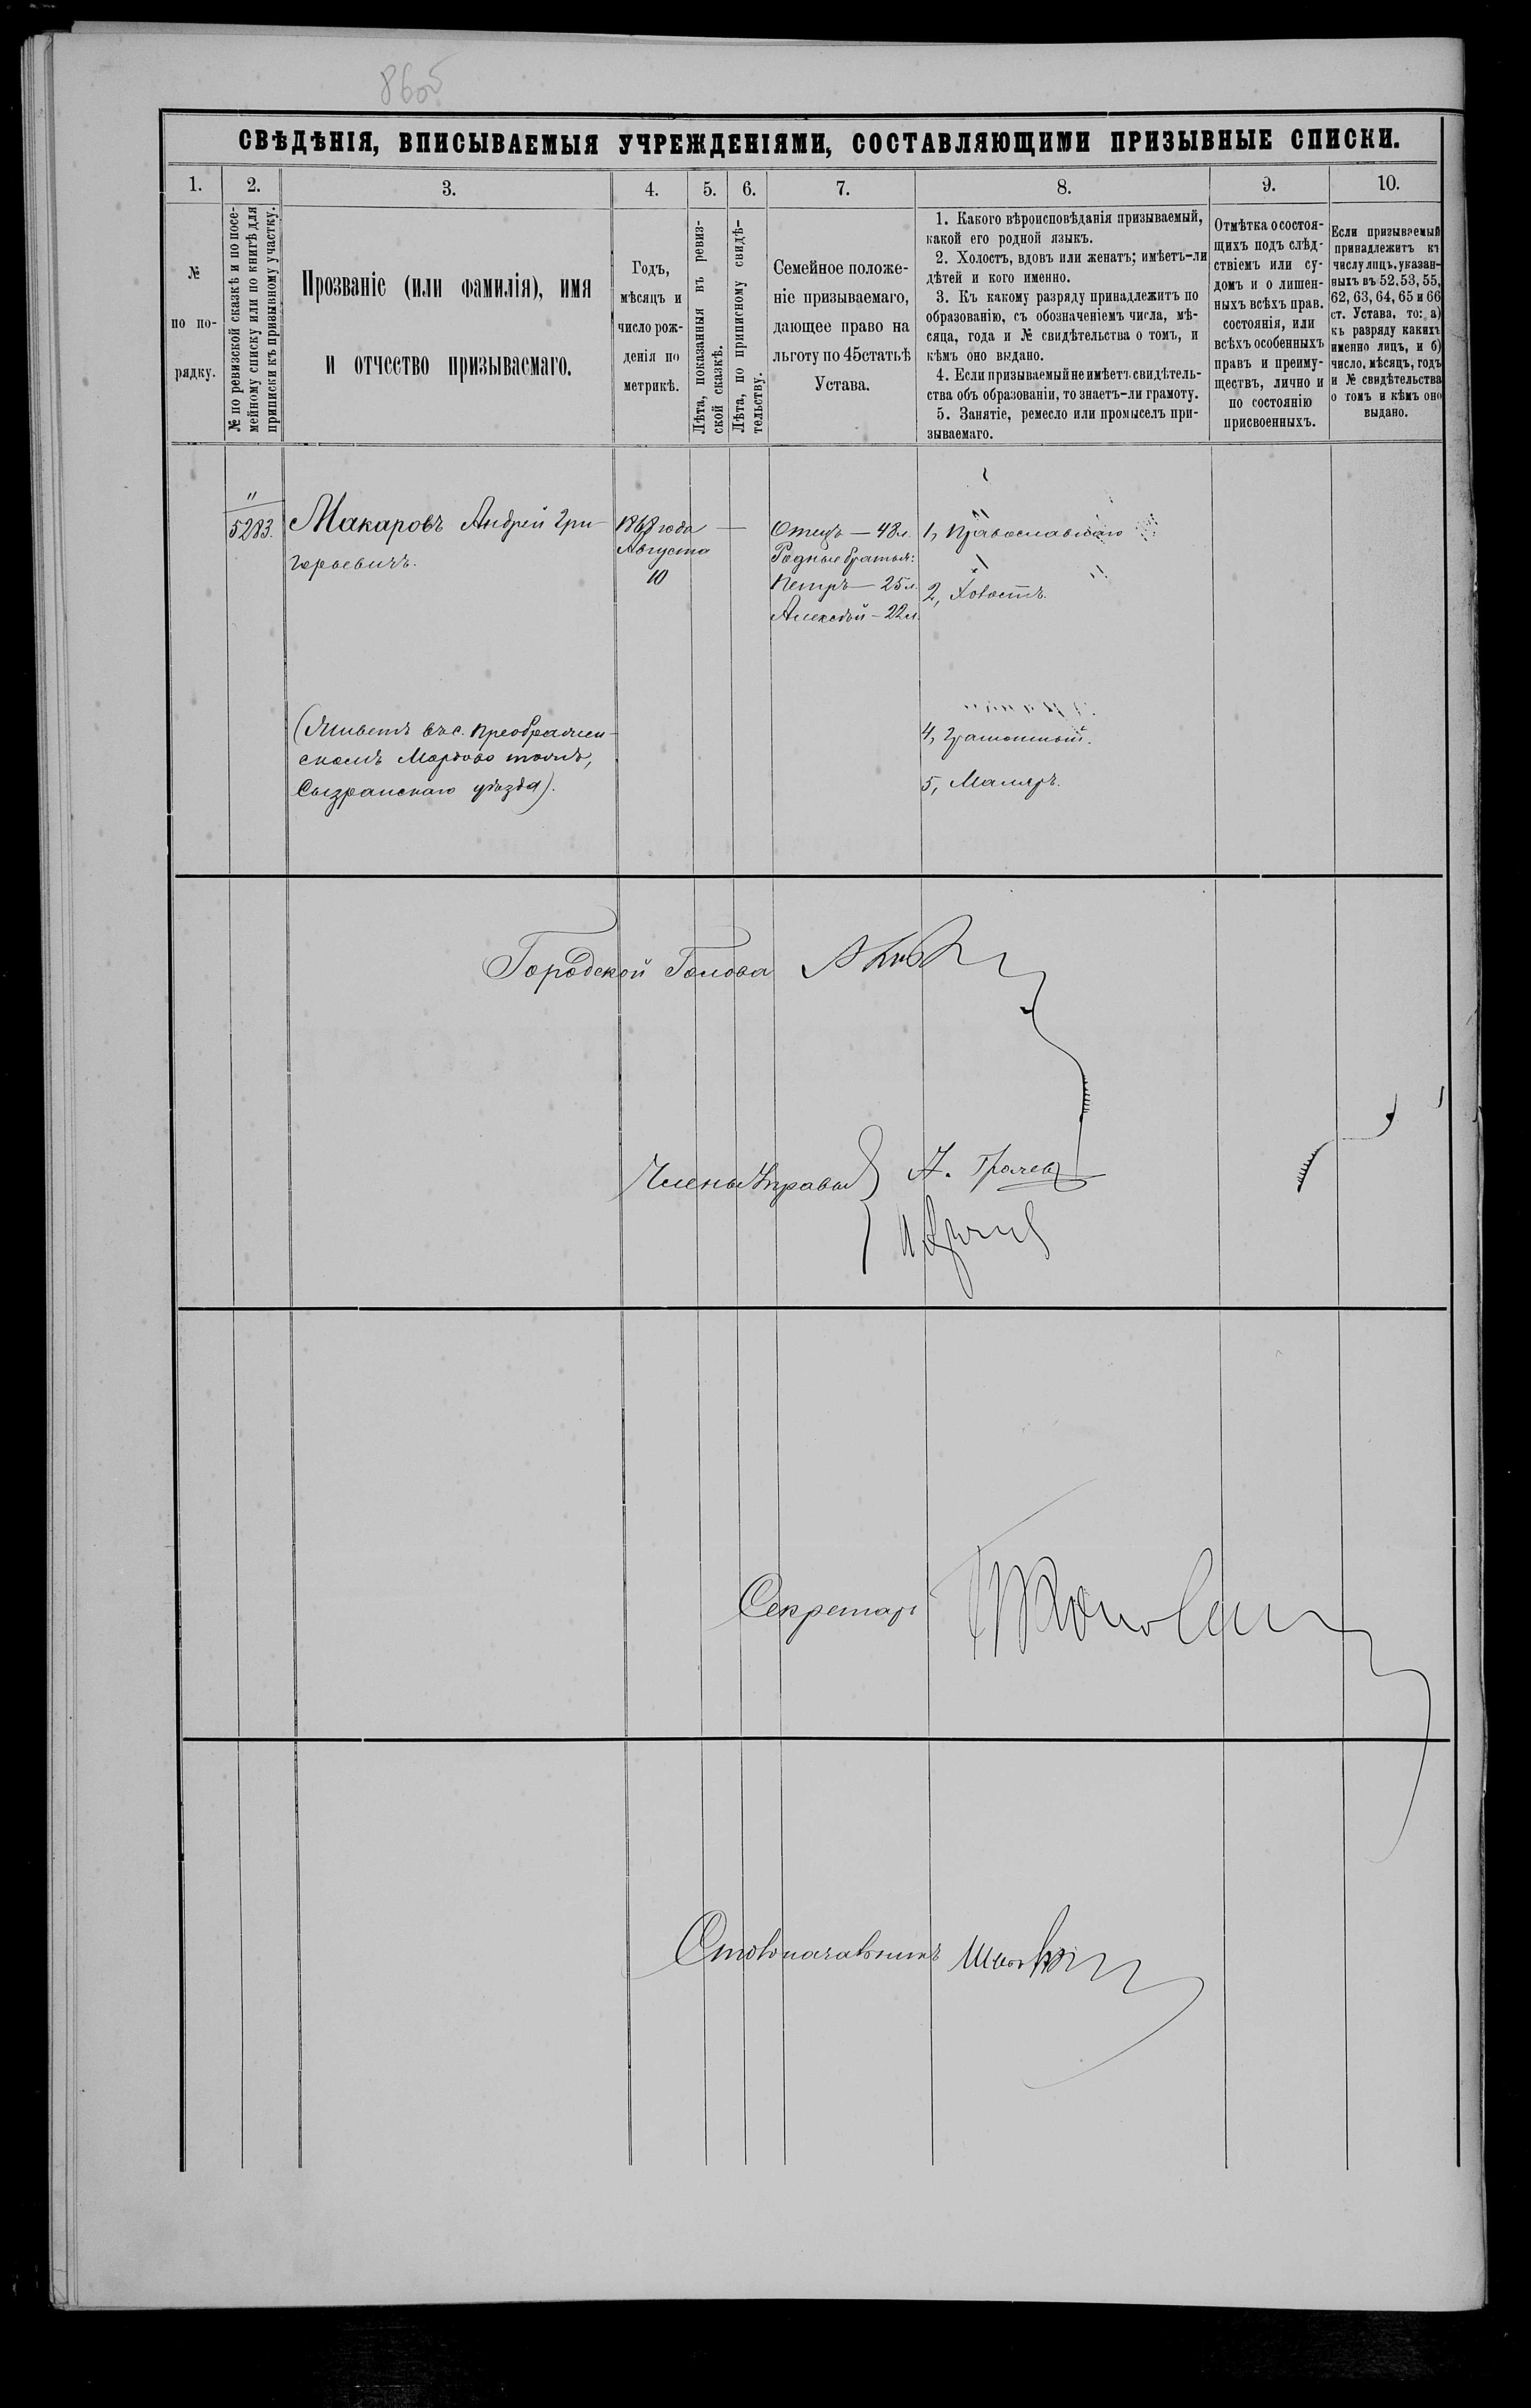 8605
СВѢДѢНІЯ, ВПИСЫВАЕМЫЯ УЧРЕЖДЕНІЯМИ, СОСТАВЛЯЮЩИМИ ПРИЗЫВНЫЕ СПИСКИ.
1.
2.
3.
4.
5.
6.
7.
8.
9.
10.
№
по по-
рядку.
№ по ревизской сказкѣ и по посе-
мейному списку или по книгѣ для
приписки къ призывному участку.
Прозваніе (или фамилія), имя
и отчество призываемаго.
Годъ,
мѣсяцъ и
число рож-
денія по
метрикѣ.
Лѣта, показанныя въ ревиз-
ской сказкѣ.
Лѣта, по приписному свидѣ-
тельству.
Семейное положе-
ніе призываемаго,
дающее право на
льготу по 45 статьѣ
Устава.
1. Какого вѣроисповѣданія призываемый,
какой его родной языкъ.
2. Холостъ, вдовъ или женатъ; имѣетъ-ли
дѣтей и кого именно.
3. Къ какому разряду принадлежитъ по
образованію, съ обозначеніемъ числа, мѣ-
сяца, года и № свидѣтельства о томъ, и
кѣмъ оно выдано.
4. Если призываемый не имѣетъ свидѣтель-
ства объ образованіи, то знаетъ-ли грамоту.
5. Занятіе, ремесло или промыселъ при-
зываемаго.
Отмѣтка о состоя-
щихъ подъ слѣд-
ствіемъ или су-
домъ и о лишен-
ныхъ всѣхъ прав.
состоянія, или
всѣхъ особенныхъ
правъ и преиму-
ществъ, лично и
по состоянію
присвоенныхъ.
Если призываемый
принадлежитъ къ
числу лицъ, указан-
ныхъ въ 52, 53, 55,
62, 63, 64, 65 и 66
ст. Устава, то: а)
къ разряду какихъ
именно лицъ, и б)
число, мѣсяцъ, годъ
и № свидѣтельства
о томъ и кѣмъ оно
выдано.
"
5283.
Макаровъ Андрей Гри-
горьевичъ.
1868 года
Августа
10
—
Отецъ — 48 л.
Родные братья:
Петръ — 25 л.
Алексѣй — 22 л.
1, Православнаго
2, Холостъ.
(Живетъ въ с. Преображен-
скомъ Мордово тожъ,
Сызранскаго уѣзда).
4, Грамотный.
5, Маляръ.
Городской Голова
Члены Управы
А. Грачев
Секретарь
Столоначальникъ